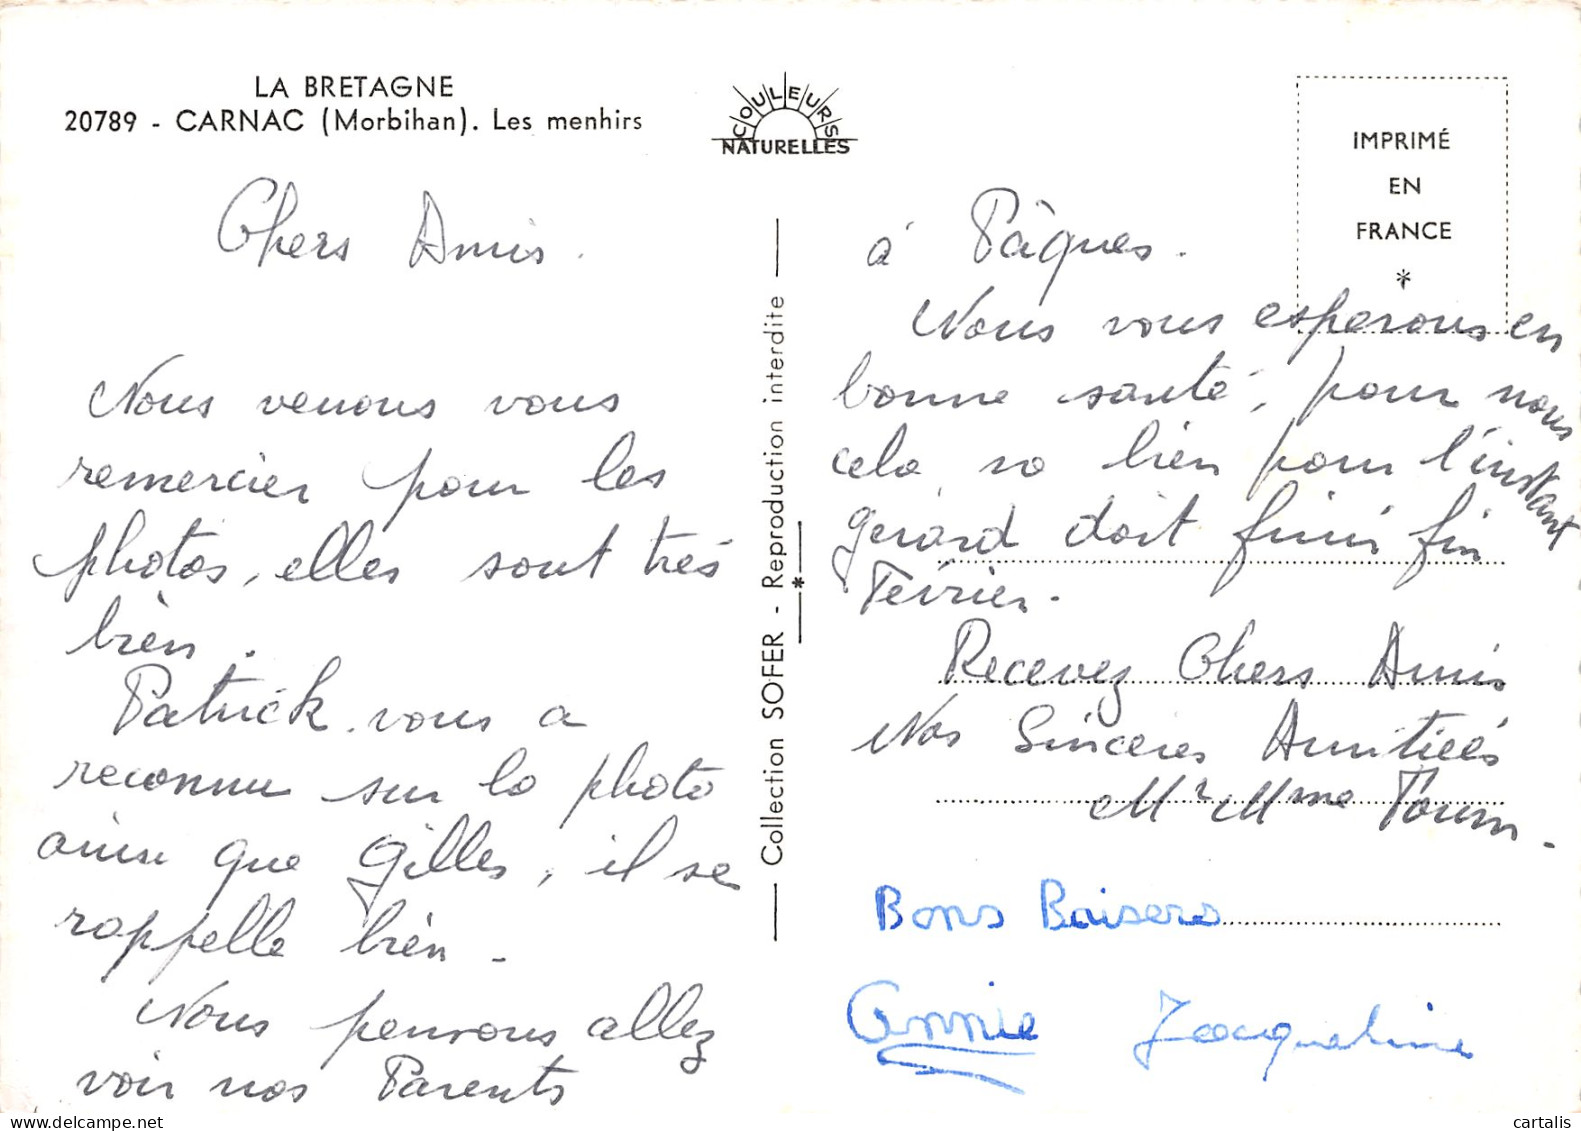 LA BRETAGNE
20789 - CARNAC (Morbihan). Les menhirs
COULEURS
NATURELLES
IMPRIMÉ
EN
FRANCE
*
Collection SOFER - Reproduction interdite
*
Chers Amis.
Nous venons vous
remercier pour les
photos, elles sont très
bien.
Patrick vous a
reconnu sur la photo
ainsi que Gilles, il se
rappelle bien.
Nous pensons allez
voir nos Parents
à Pâques.
Nous vous esperons en
bonne santé, pour nous
cela va bien pour l'instant
gérard doit finir fin
Février.
Recevez Chers Amis
Nos Sincères Amitiés
Mr Mme
Bons Baisers
Annie Jacqueline
cartalis